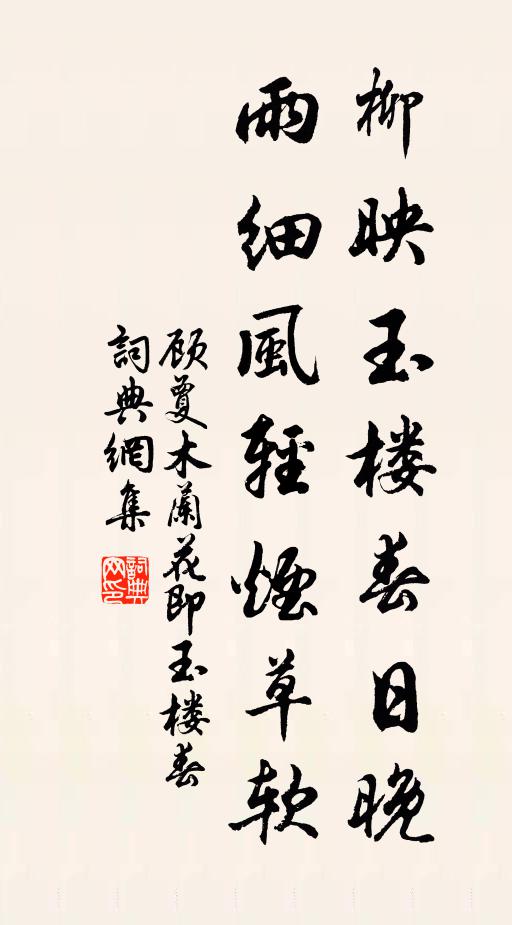 柳映玉楼春日晚
雨细風輕煙草软
顾敻木蘭花即玉楼春
詞典網集
詞典网印